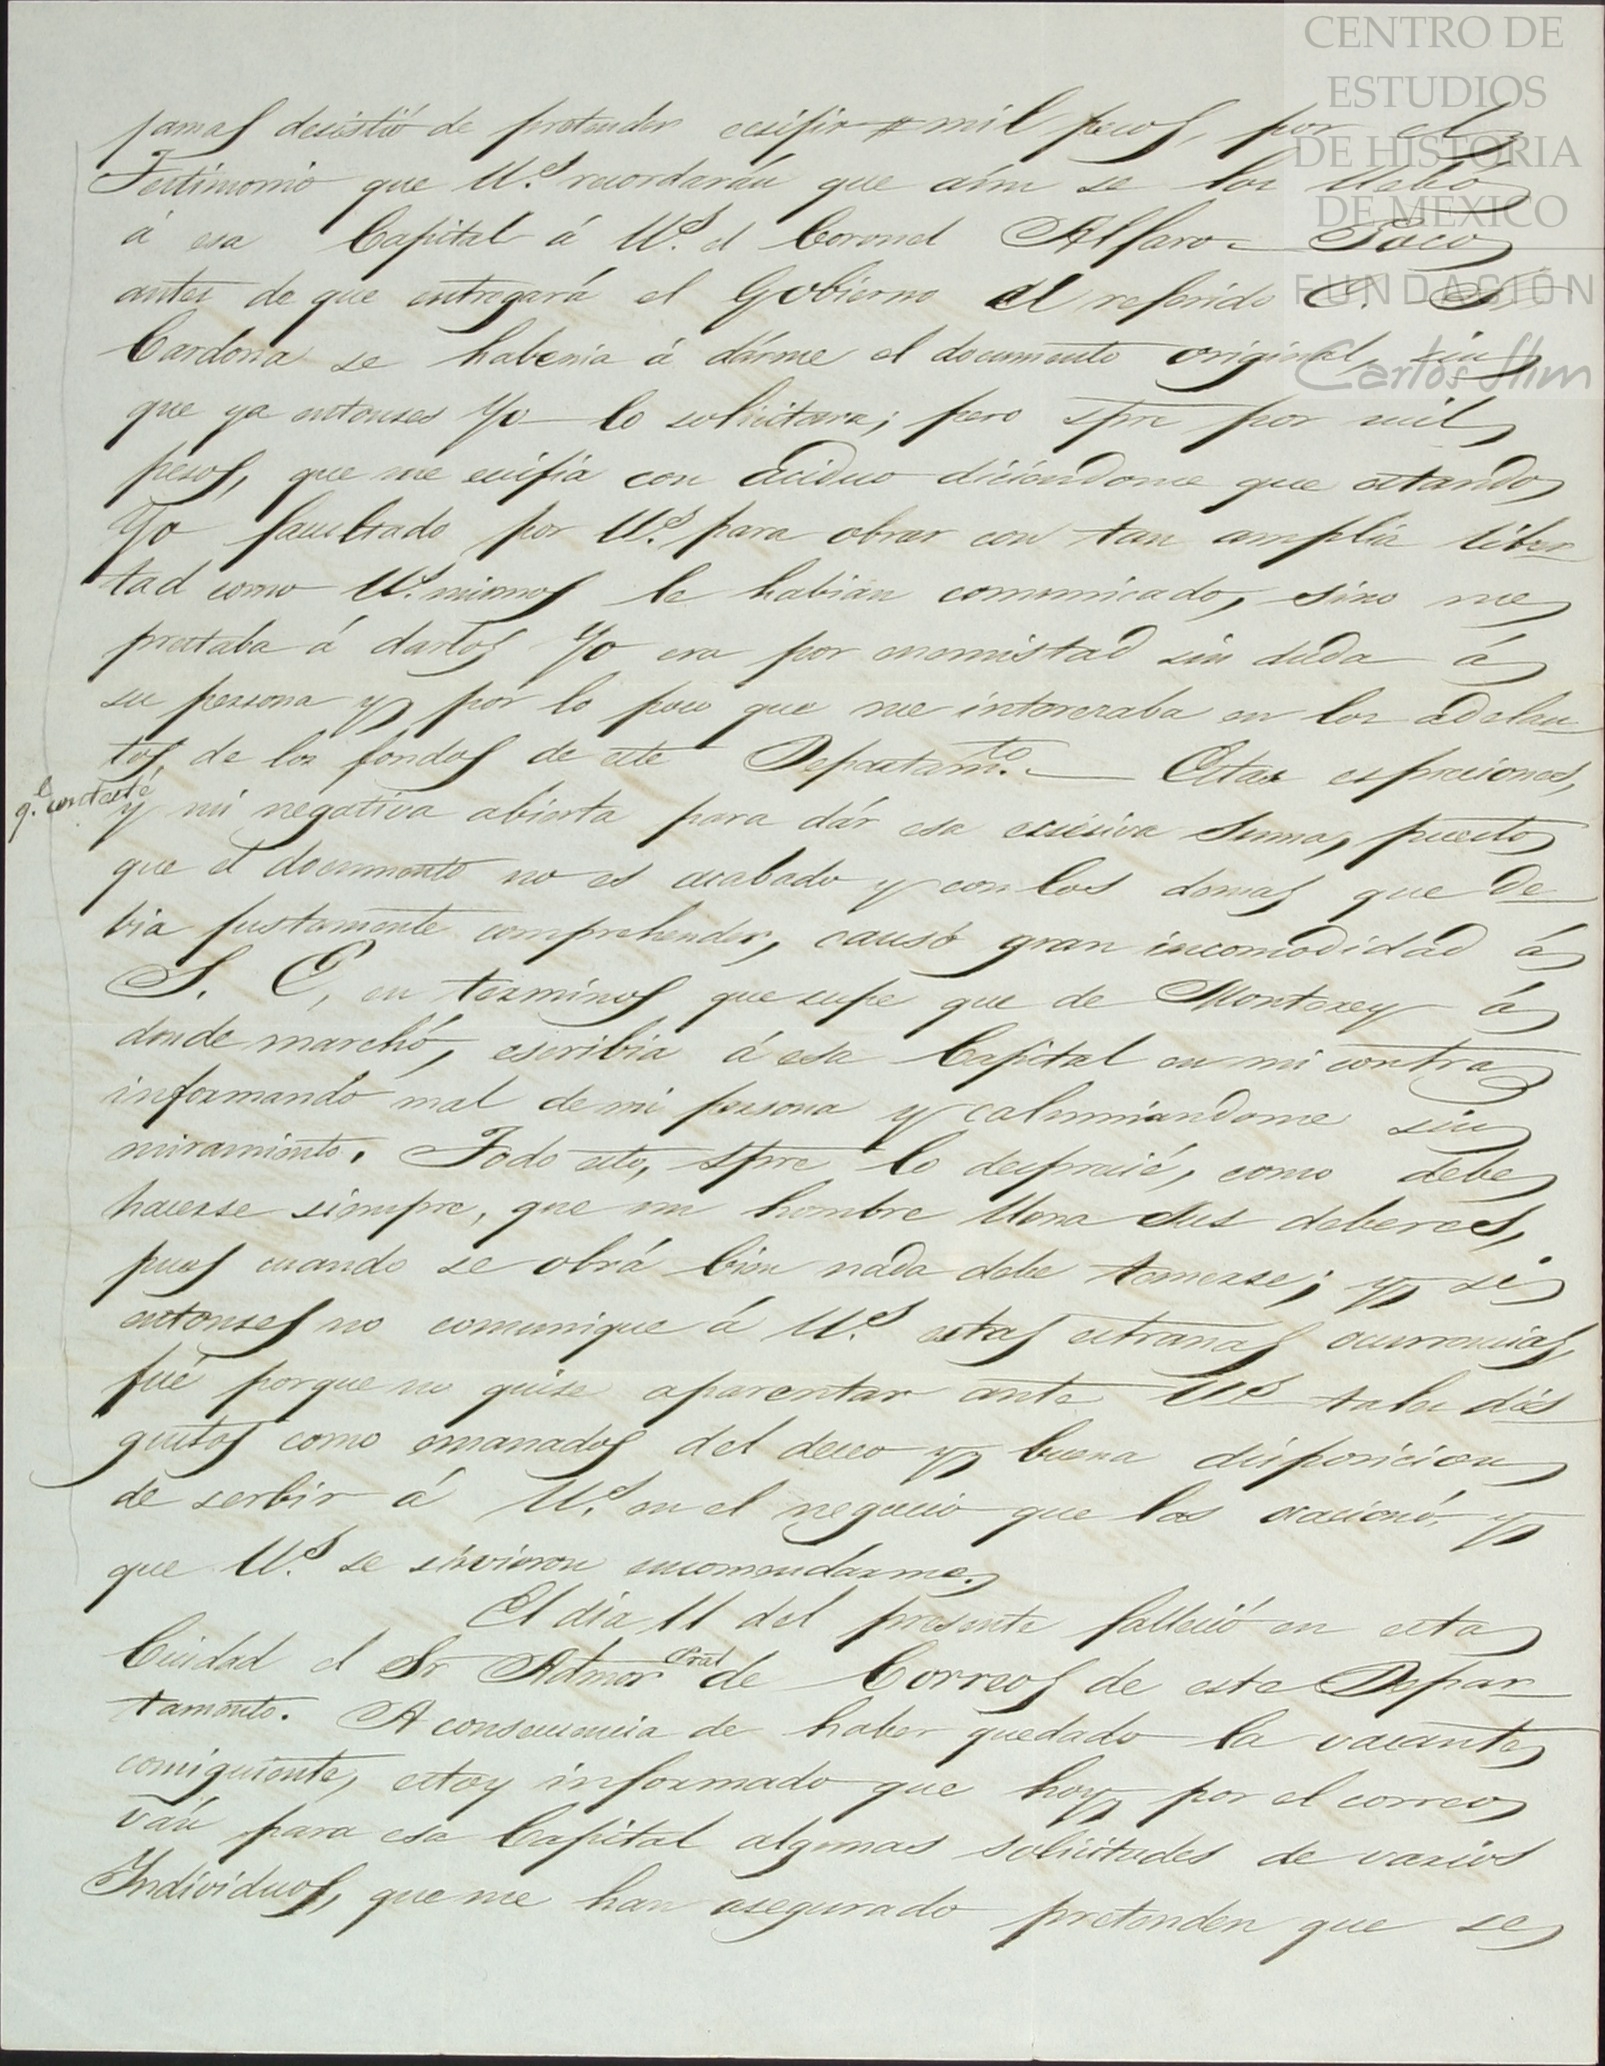 CENTRO DE
ESTUDIOS
DE HISTORIA
DE MEXICO
FUNDACIÓN
Carlos Slim
jamas desistió de pretender ecsijir mil pesos, por el
Testimonio que U.s recordarán que aún se los llebó
á esa Capital á U.s el Coronel Alfaro = Poco
antes de que entregará el Gobierno el referido C. S.
Cardona se habenia á dárme el documento original, sin
que ya entonses Yo lo solicitara; pero spre por mil
pesos, que me ecijia con aciduo diciéndome que estando
Yo facultado por U.s para obrar con tan amplia liber
tad como U.s mismos le habián comunicado, sino me
prestaba á darlos Yo era por enemistad sin duda á
su persona y por lo poco que me interezaba en los adelan
tos de los fondos de este Departam.to — Estas espreciones,
q.e contesté
y mi negativa abierta para dár esa ecsesiva suma, puesto
que el documento no es acabado y con los demas que de
bia justamente comprehender, causó gran incomodidad á
S. E, en terminos que supe que de Monterey á
donde marchó, escribia á esa Capital en mi contra
informando mal de mi persona y calumniandome sin
miramiento. Todo esto, spre lo desprecié, como debe
hacerse siempre, que un hombre llena sus deberes,
pues cuando se obrá bien nada debe temerse; y si
entonses no comunique á U.s estas estrañas ocurrencias,
fué porque no quise aparentar ante U.s tales dis
gustos como emanados del deceo y buena disposicion
de serbir á U.s en el negocio que los ocacionó, y
que U.s se sirvieron encomendarme.
El dia 11 del presente fallecio en esta
Ciudad el Sr Admor Pral de Correos de este Depar
tamento. A consecuencia de haber quedado la vacante
consiguiente, estoy informado que hoy por el correo
ván para esa Capital algunas solicitudes de varios
Individuos, que me han asegurado pretenden que se